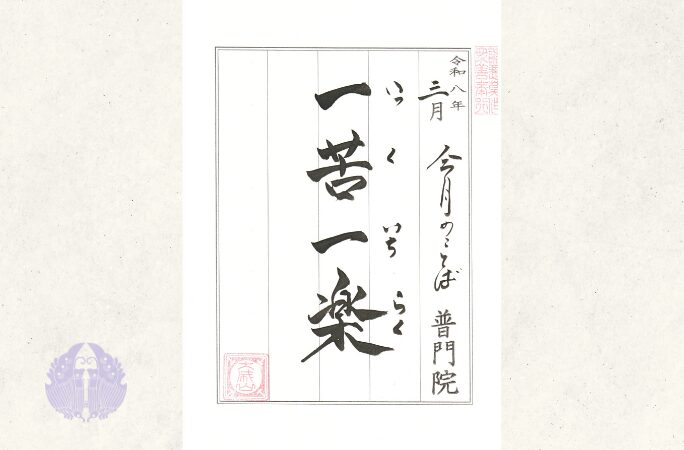 令和八年
三月 今月のことば 普門院
いっく いちらく
一苦一楽